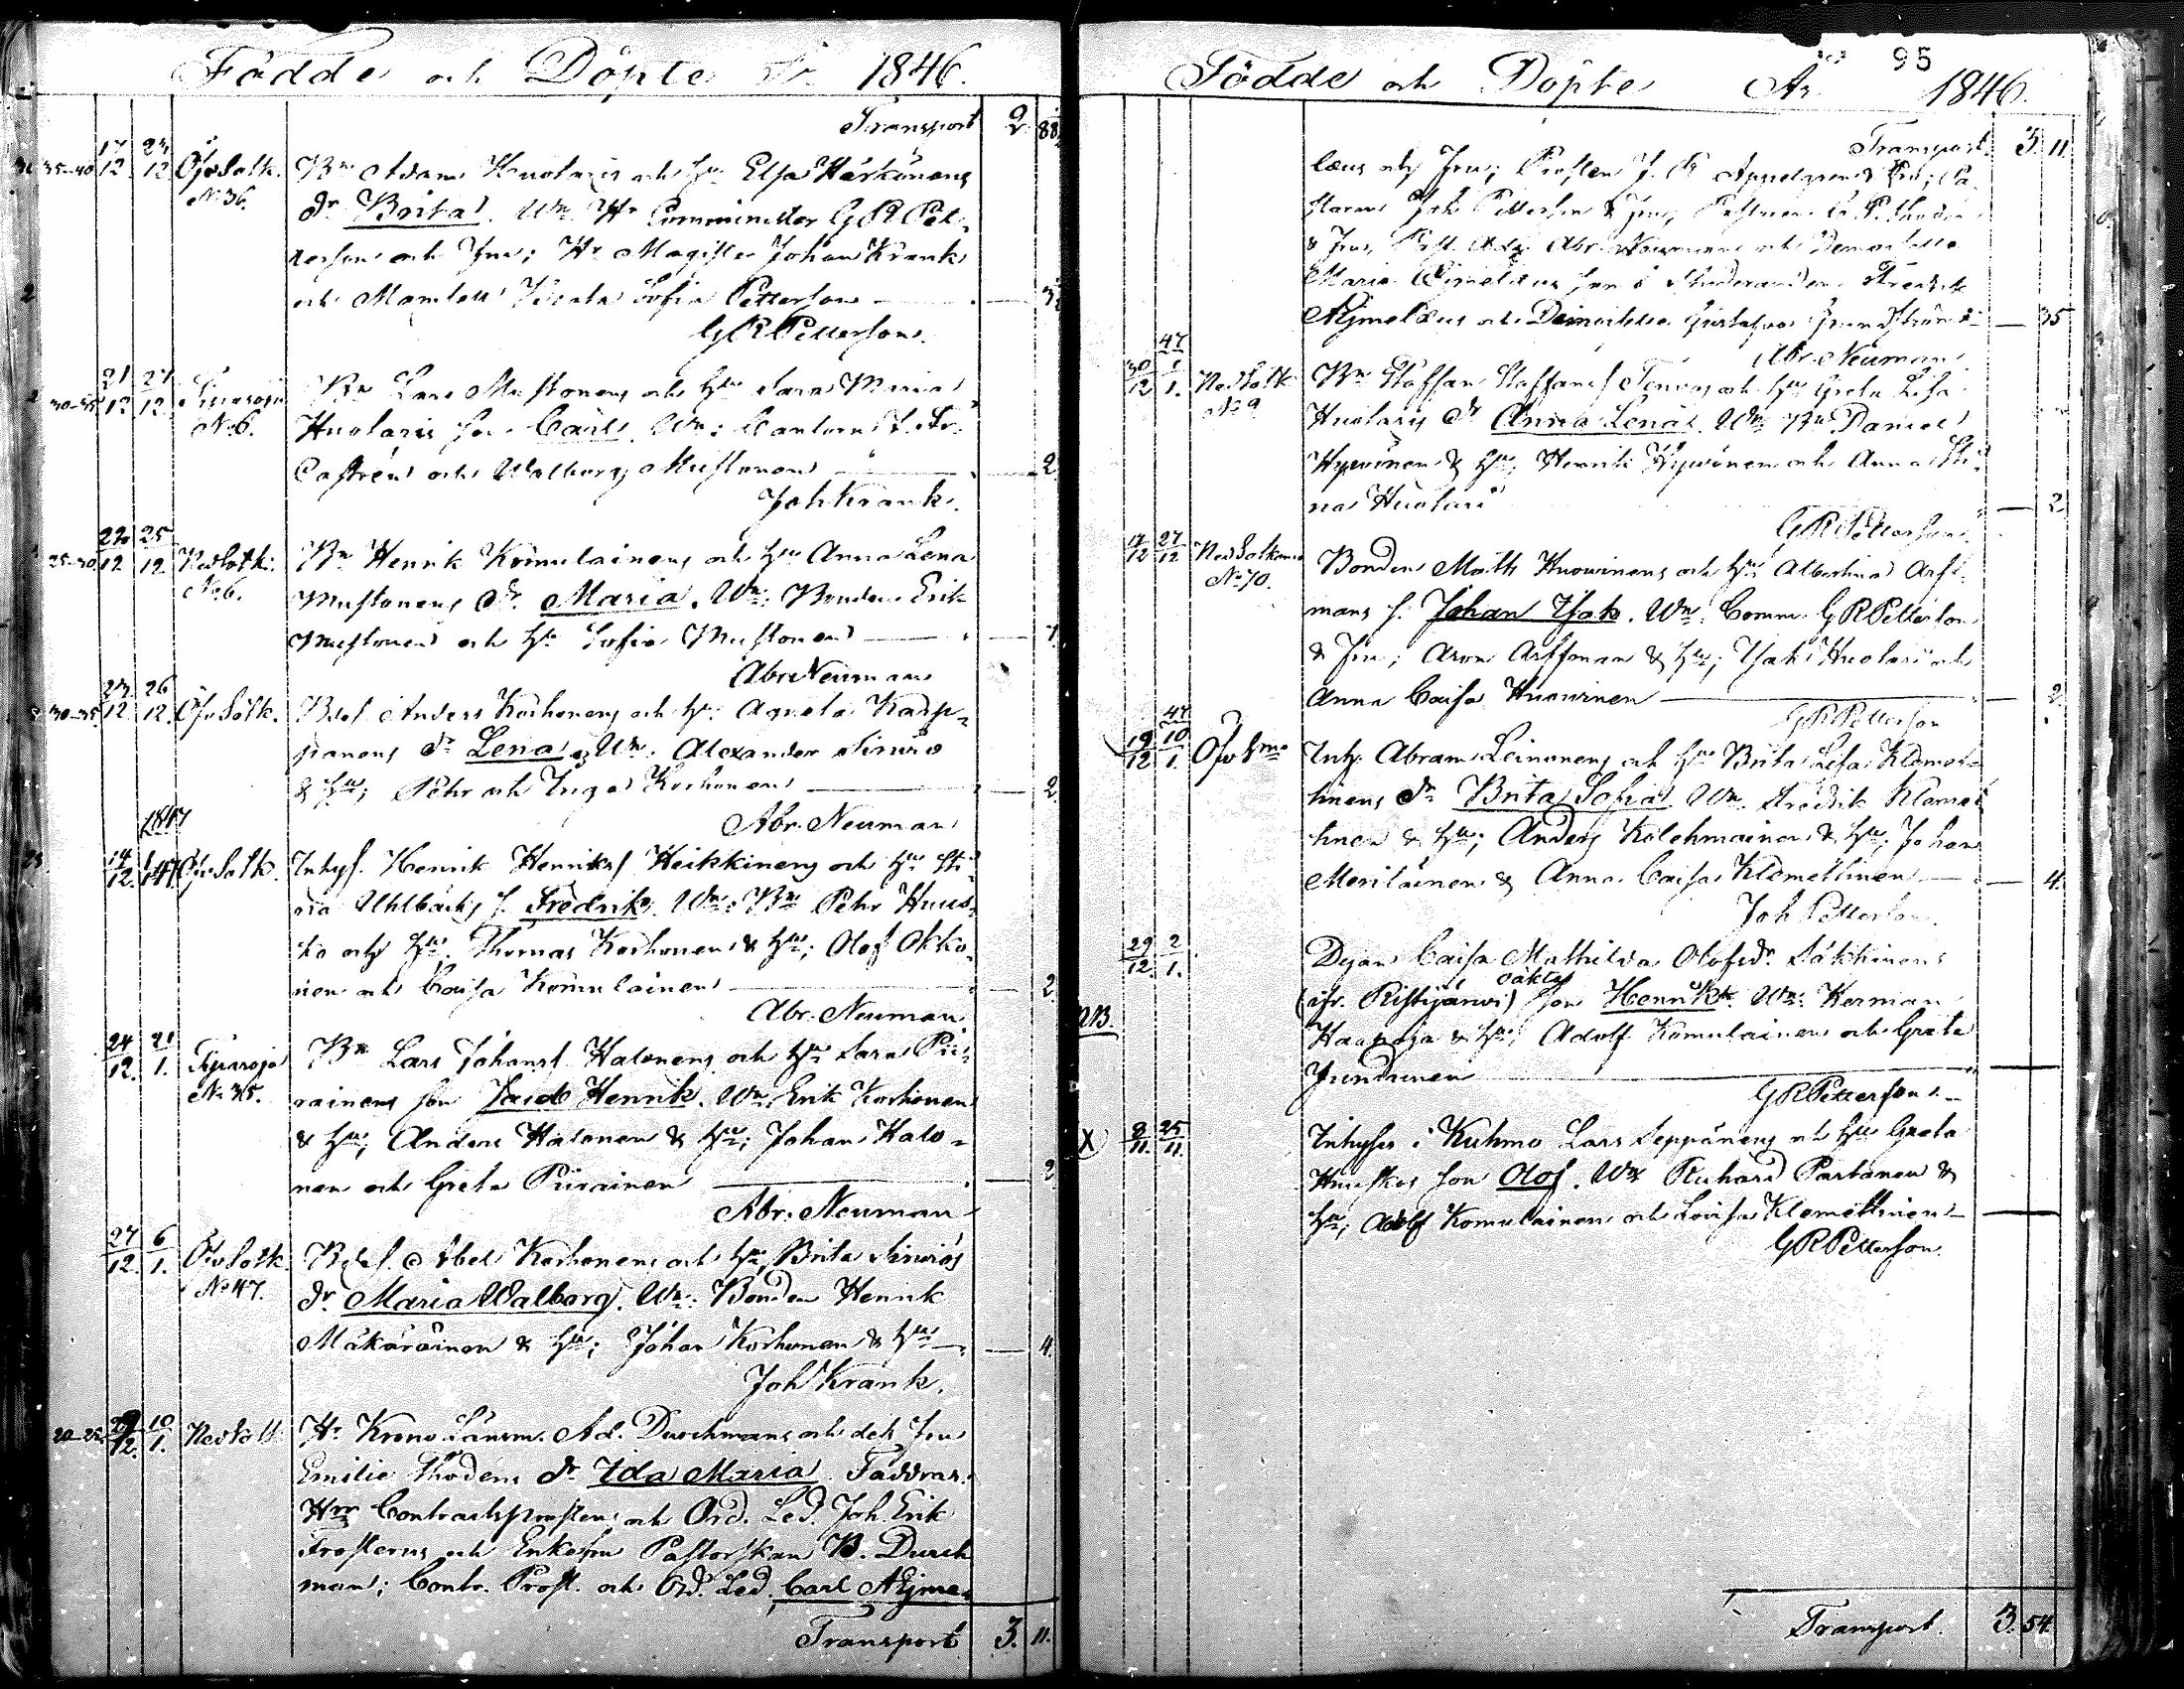 Födde och Döpte År 1846.
Transport 2 88
17/12 23/12 Öfv Sotk. Bn Adam Huolaris och hu Elsa Härkönens
35-40 No 36. dr Brita. Wn Hr Comminister G R Pet-
tersson och Fru; Hr Magister Johan Krank
och Mamsell Beata Sofia Petterson
G R Petterson.
21/12 27/12 Bn Lars Mustonens och hu Sara Maria
30-35 No 6. Huolaris son Carl. Wn: Cantorn
Castrén och Walborg Mustonen 2
Joh Krank.
22/12 25/12 Ned Sotk. Bn Henrik Komulainens och hu Anna Lena
25-30 No 6. Mustonens dr. Maria. Wn: Bonden Erik
Mustonen och hu Sofia Mustonen
Abr. Neuman
23/12 26/12 Öfv Sotk. Anders Korhonens och hu Agneta Karp-
30-35 panens dr Lena. Wn. Alexander Sirviö
& hu; Pehr och Inga Korhonen 2.
Abr. Neuman
1847
14/12 Öfv Sotk. Inhys. Henrik Henrikss Heikkinens och hu Sti-
na Uhlbäcks s. Fredrik. Wn: Bn Pehr Huus-
ko och hu. Thomas Korhonen & hu; Olof Okko-
nen och Caisa Komulainen 2.
Abr. Neuman
24/12. 21/1. Tiparoja Bn Lars Johanss Halonens och hu Sara Pii-
No 35. rainens son Jacob Henrik. Wn. Erik Korhonen
& hu; Anders Halonen & hu; Johan Halo-
nen och Greta Piirainen 2
Abr. Neuman
27/12. 6/1. Öfv Sotk. Abel Korhonens och hu Brita Sirviös
No 47. dr. Maria Walborg. Wn: Bonden Henrik
Mäkäräinen & hu; Johan Korhonen & hu 4.
Joh Krank.
29/12. 10/1. Ned Sotk Hr Krono Länsm. Ad. Durchmans och dess Fru
Emilie Thodens dr Ida Maria. Faddrar:
Hrr Contractsprosten och Ord. Led. Joh. Erik
Frosterus och Enkefru Pastorskan B. Durch
man; Contr. Prost. och Ord. Led. Carl Ajme-
Transport 3. 11.
95
Födde och Döpte År 1846.
Transport. 3. 11.
læus och Fru; Prosten J. Appelgren & Fru; Pa-
storn Joh Petterson & Fru; Pastorn
& Fru, Past. Adj. Abr. Neuman och Demoiselle
Maria samt Studeranden Fredrik
Ajmelæus och Demoiselle Gustafva 35
Abr. Neuman
47
30/12 1. Ned Sotk Bn Staffan Staffanss och hu Greta Lisa
No 9. Huolaris dr Anna Lena. Wn: Bn Daniel
Hyvönen & hu; Henrik Hyvönen och Anna Sti-
na Huolari 2
G R Petterson
17/12 27/12 Ned Sotkamo Bonden Matts Huovinens och hu Albertina Arff-
No 70. mans s. Johan Isak. Wn: Comm. G R Petterson
& Fru; Aron Arffman & hu; Isak Huolari och
Anna Caisa Huovinen 2.
G R Petterson
47
19/12 10/1. Inh. Abram Leinonens och hu Brita Lisa Klemet-
tinens dr Brita Sofia. Wn. Fredrik Klemet-
tinen & hu; Anders Kolehmainen & hu; Johan
Meriläinen & Anna Caisa Klemettinen 4.
Joh Petterson.
29/12. 2/1. Pigan Caisa Mathilda Olofsdr Säkkinens
(ifr. Ristijärvi) oäkta son Henrik. Wn: Herman
NB. Haapoja & hu; Adolf Komulainen och Greta
Juntunen
G R Petterson.
X 8/11. 25/11. Inhyses i Kuhmo Lars Seppänens och hu Greta
Huuskos son Olof. Wn Richard Partanen &
hu; Adolf Komulainen och Lovisa Klemettinen
G R Petterson.
Transport. 3. 54.